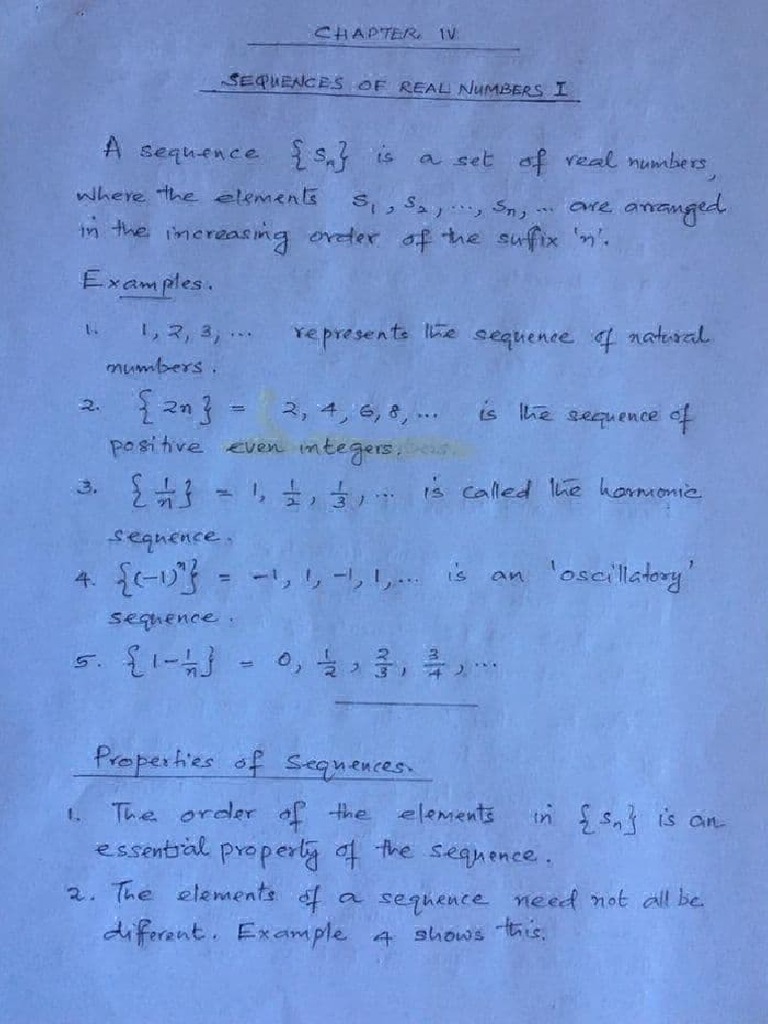 CHAPTER IV
SEQUENCES OF REAL NUMBERS I
A sequence {Sₙ} is a set of real numbers,
where the elements S₁, S₂, ..., Sₙ, ... are arranged
in the increasing order of the suffix 'n'.
Examples.
1. 1, 2, 3, ... represents the sequence of natural
numbers.
2. {2n} = 2, 4, 6, 8, ... is the sequence of
positive even integers.
3. {1/n} = 1, 1/2, 1/3, ... is called the harmonic
sequence.
4. {(-1)ⁿ} = -1, 1, -1, 1, ... is an 'oscillatory'
sequence.
5. {1-1/n} = 0, 1/2, 2/3, 3/4, ...
Properties of Sequences.
1. The order of the elements in {Sₙ} is an
essential property of the sequence.
2. The elements of a sequence need not all be
different. Example 4 shows this.